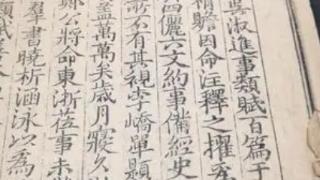 吳淑進事類賦百篇于
精贍因命注釋之擢
四儷六文約事備經史
不有其視李嶠單題
啻萬萬矣歲月寖久
公將命東浙莅事未
羣書曉析涵泳以為